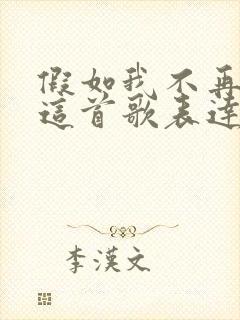 假如我不再
這首歌表達
李漢文